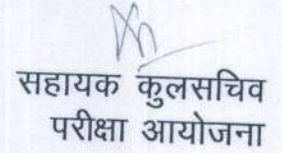 सहायक कुलसचिव
परीक्षा आयोजना